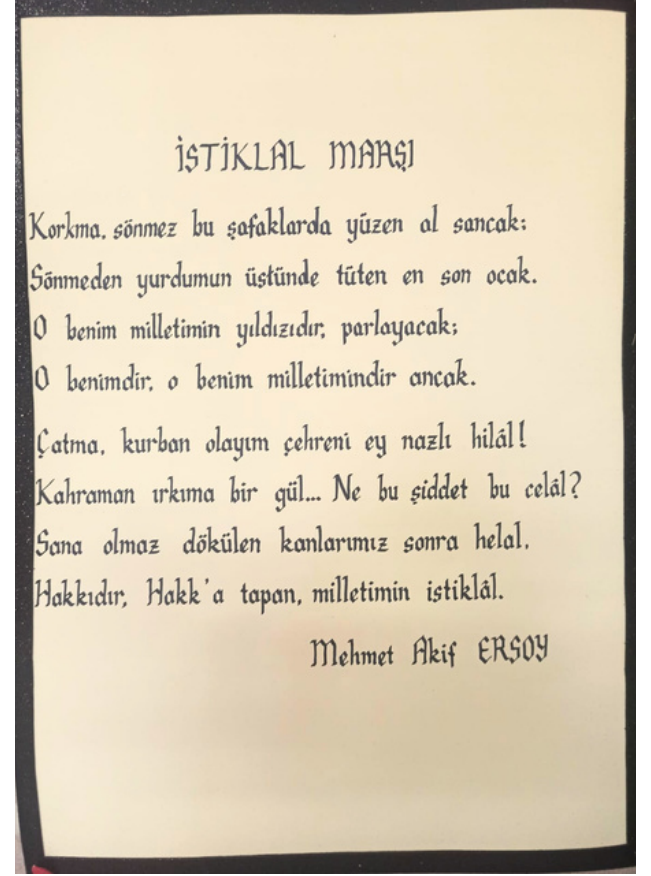 İSTİKLAL MARŞI
Korkma, sönmez bu şafaklarda yüzen al sancak;
Sönmeden yurdumun üstünde tüten en son ocak.
O benim milletimin yıldızıdır, parlayacak;
O benimdir, o benim milletimindir ancak.
Çatma, kurban olayım çehreni ey nazlı hilâl!
Kahraman ırkıma bir gül... Ne bu şiddet bu celâl?
Sana olmaz dökülen kanlarımız sonra helal,
Hakkıdır, Hakk'a tapan, milletimin istiklâl.
Mehmet Akif ERSOY